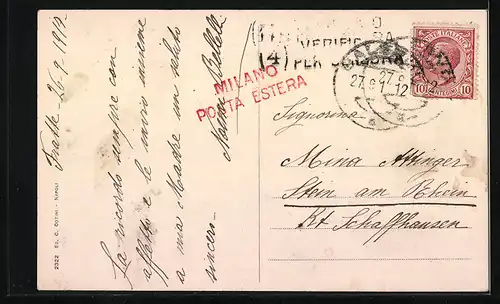 Fratte 26-9-1912
La ricordo sempre con
affetto e le invio insieme
a mia Madre un saluto
sincero-
2322 Ed. G. - Napoli
VERIFIC
(4) PER
MILANO
POSTA ESTERA
27 9 12
POSTE ITALIANE
10 CENTESIMI 10
Signorina
Mina Attinger
Stein am Rhein
Kt Schaffhausen